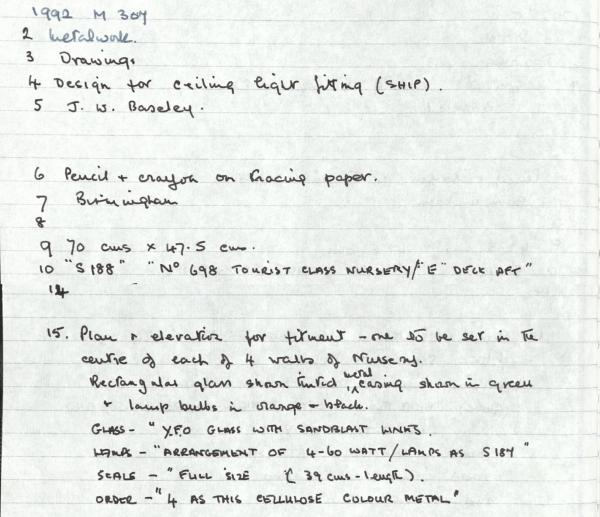 1992 M 304
2 Metalwork.
3 Drawings
4 Design for ceiling light fitting (SHIP).
5 J. W. Baseley.
6 Pencil + crayon on tracing paper.
7 Birmingham
8
9 70 cms x 47.5 cms.
10 "S188" "No 698 TOURIST CLASS NURSERY/"E" DECK AFT"
14
15. Plan + elevation for fitment - one to be set in the
centre of each of 4 walls of Nursery.
Rectangular glass shown tinted, metal casing shown in green
+ lamp bulbs in orange + black.
GLASS - "Y.F.O GLASS WITH SANDBLAST LINES.
LAMPS - "ARRANGEMENT OF 4-60 WATT/LAMPS AS S187"
SCALE - "FULL SIZE (39 cms - length).
ORDER - "4 AS THIS CELLULOSE COLOUR METAL"